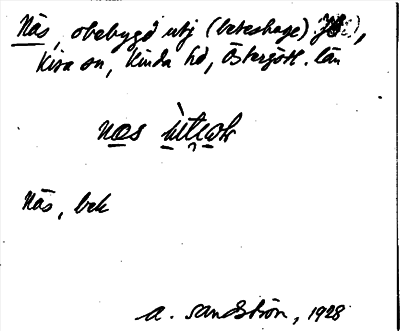 Näs, obebygd utj (beteshage)
Kisa sn, Kinda hd, Östergötl. län
Näs, bek
A. Sandström, 1928